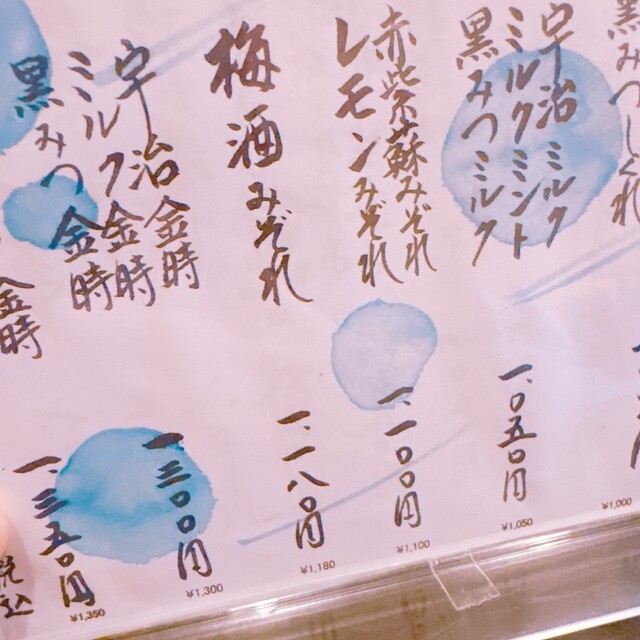 黒みつしぐれ
¥1,000
宇治ミルク
ミルクミント
黒みつミルク
一、〇五〇円
¥1,050
赤紫蘇みぞれ
レモンみぞれ
一、一〇〇円
¥1,100
梅酒みぞれ
一、一八〇円
¥1,180
宇治金時
ミルク金時
黒みつ金時
一、三〇〇円
¥1,300
金時
一、三五〇円
¥1,350
税込